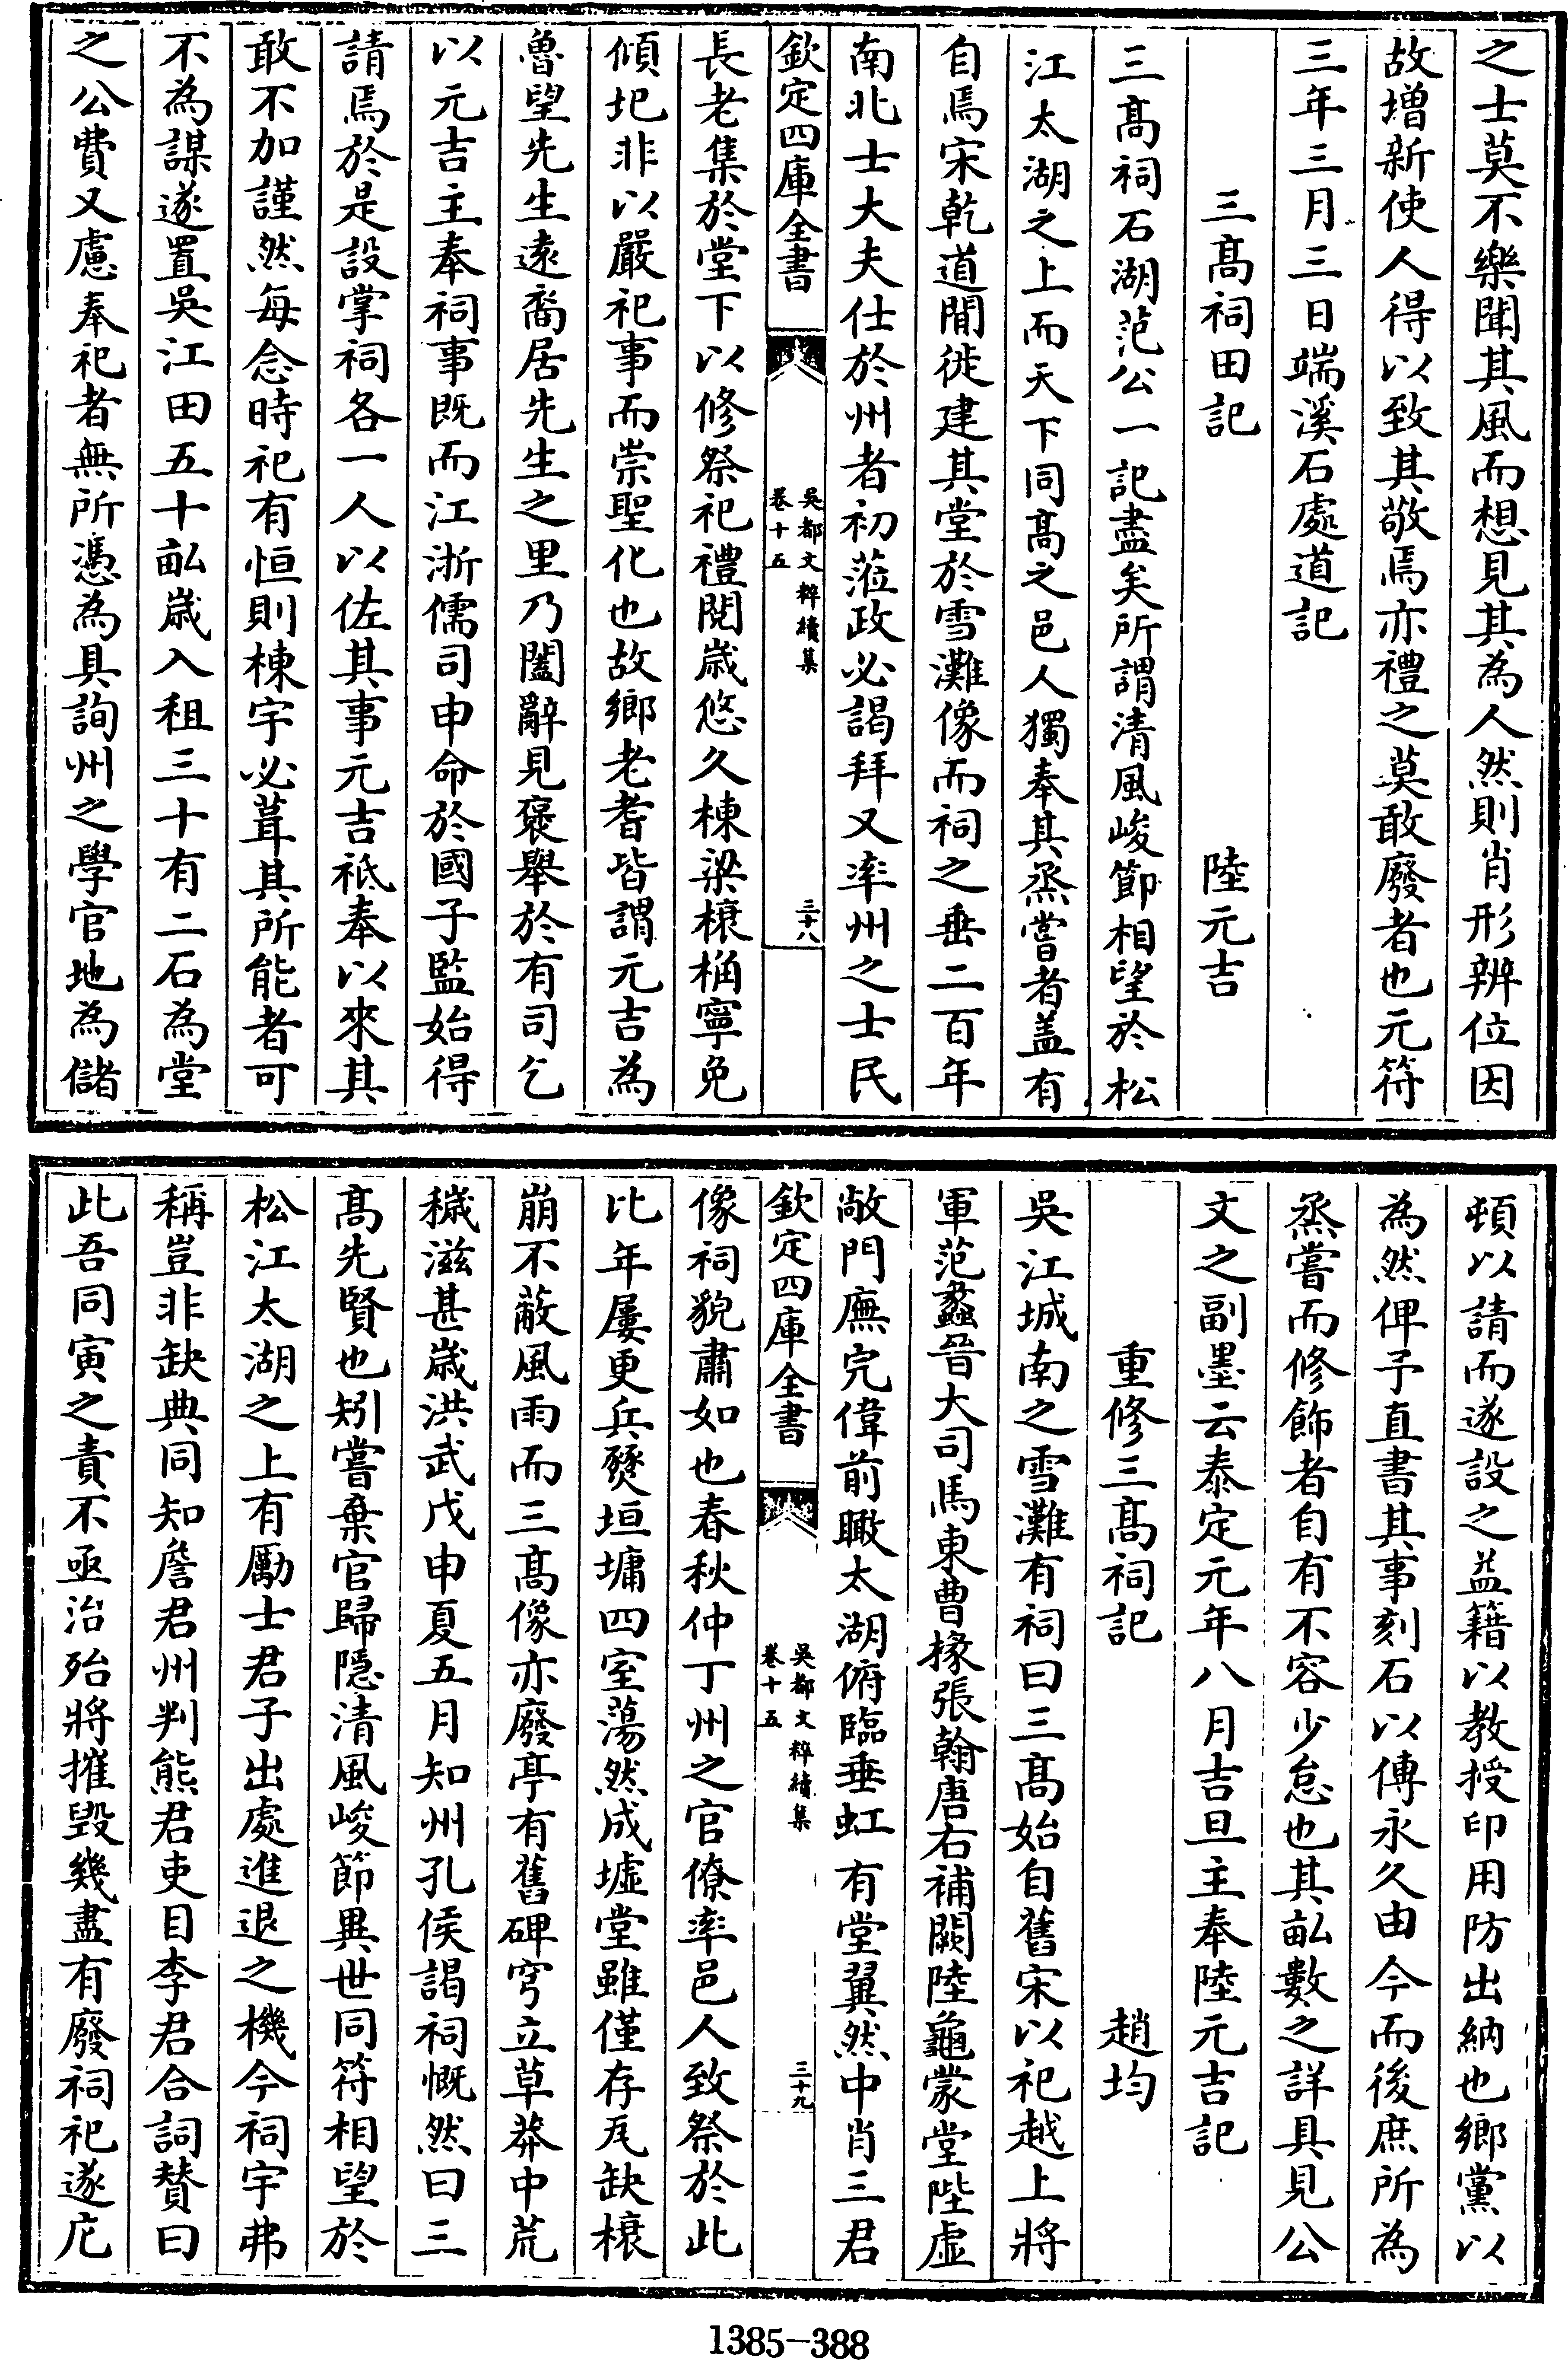 之士莫不樂聞其風而想見其為人然則肖形辨位因
故增新使人得以致其敬焉亦禮之莫敢廢者也元符
三年三月三日端溪石處道記
三髙祠田記
陸元吉
三髙祠石湖范公一記盡矣所謂清風峻節相望於松
江太湖之上而天下同髙之邑人獨奉其烝嘗者盖有
自焉宋乾道間徙建其堂於雪灘像而祠之垂二百年
南北士大夫仕於州者初蒞政必謁拜又率州之士民
欽定四庫全書
吳都文粹續集
卷十五
三十八
長老集於堂下以修祭祀禮閱歳悠久棟梁榱桷寧免
傾圯非以嚴祀事而崇聖化也故鄉老耆皆謂元吉為
魯望先生逺裔居先生之里乃闔辭見褒舉於有司乞
以元吉主奉祠事既而江浙儒司申命於國子監始得
請焉於是設掌祠各一人以佐其事元吉祗奉以來其
敢不加謹然每念時祀有恒則棟宇必葺其所能者可
不為謀遂置吳江田五十畆歳入租三十有二石為堂
之公費又慮奉祀者無所憑為具詢州之學官地為儲
頓以請而遂設之益籍以教授印用防出納也鄉黨以
為然俾予直書其事刻石以傳永久由今而後庶所為
烝嘗而修飾者自有不容少怠也其畆數之詳具見公
文之副墨云泰定元年八月吉旦主奉陸元吉記
重修三髙祠記
趙均
吳江城南之雪灘有祠曰三髙始自舊宋以祀越上將
軍范蠡晉大司馬東曹掾張翰唐右補闕陸龜蒙堂陛虚
敞門廡完偉前瞰太湖俯臨垂虹有堂翼然中肖三君
欽定四庫全書
吳都文粹續集
卷十五
三十九
像祠貌肅如也春秋仲丁州之官僚率邑人致祭於此
比年屢更兵燹垣墉四室蕩然成墟堂雖僅存瓦缺榱
崩不蔽風雨而三髙像亦廢亭有舊碑穹立草莽中荒
穢滋甚歳洪武戊申夏五月知州孔侯謁祠慨然曰三
髙先賢也矧嘗棄官歸隱清風峻節異世同符相望於
松江太湖之上有勵士君子出處進退之機今祠宇弗
稱豈非缺典同知詹君州判熊君吏目李君合詞贊曰
此吾同寅之責不亟治殆將摧毁幾盡有廢祠祀遂庀
1385-388